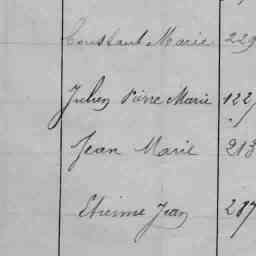 Constant Marie 229
Julien Pierre Marie 122
Jean Marie 213
Etienne Jean 217